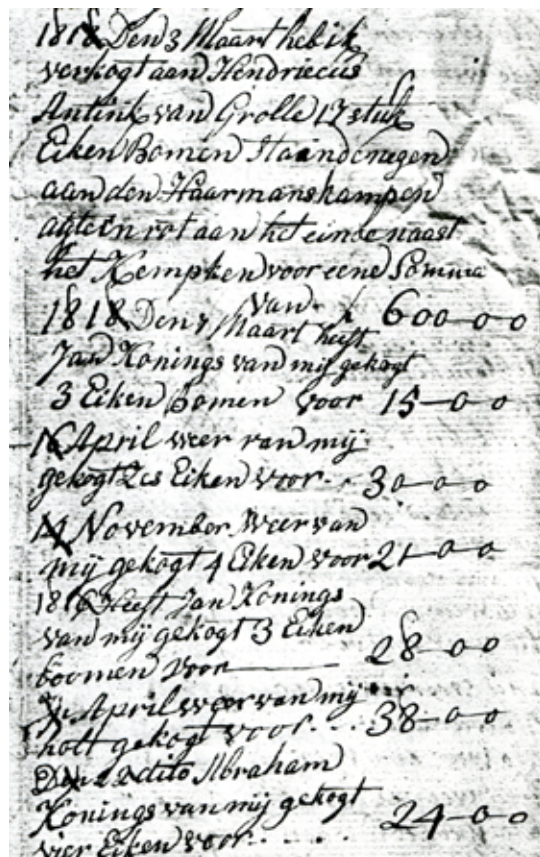 1818 Den 3 Maart heb ik
verkogt aan Hendriecus
Antink van Grolle 17 stuk
Eiken Bomen Staande
aan den Haarmanskampen
agter aan het einde naast
het Kempken voor eene Somma
van f 600-0-0
1818 Den Maart heeft
Jan Konings van mij gekogt
3 Eiken Bomen voor 15-0-0
16 April weer van mij
gekogt Eiken voor 30-0-0
November Weer van
mij gekogt 4 Eiken voor 21-0-0
1816 Heeft Jan Konings
van mij gekogt 3 Eiken
boomen voor 28-0-0
April weer van mij
holt gekogt voor 38-0-0
Den 22 dito Abraham
Konings van mij gekogt
vier Eiken voor 24-0-0